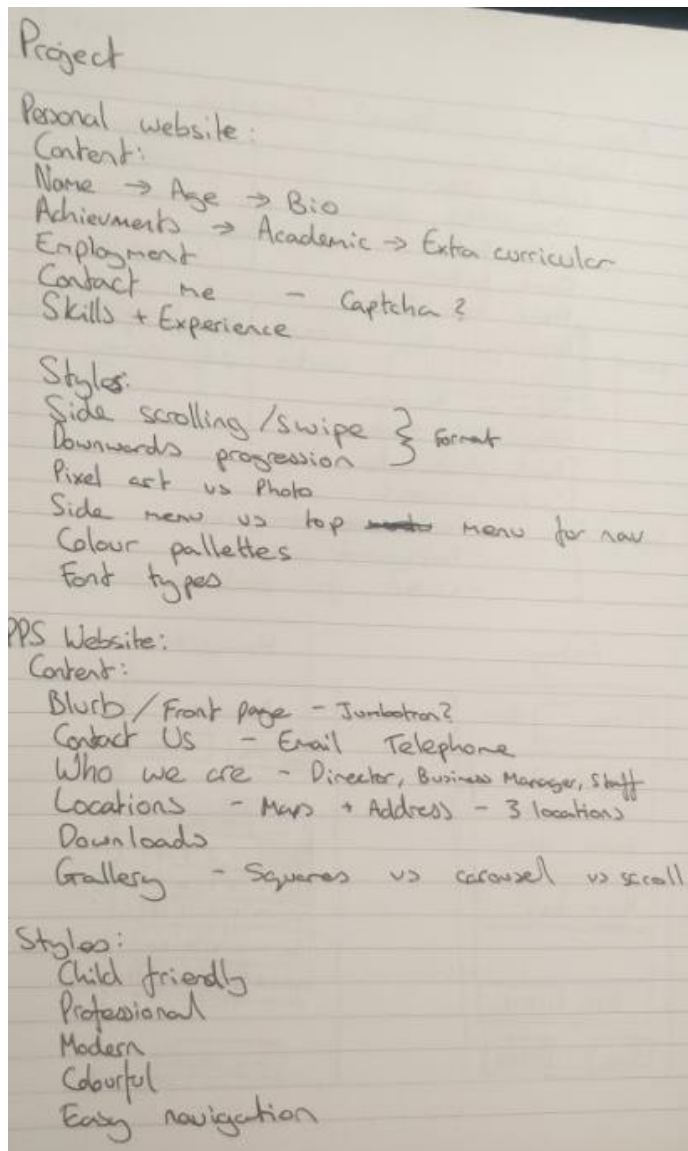 Project
Personal website:
Content:
Name → Age → Bio
Achievments → Academic → Extra curricular
Employment
Contact me - Captcha?
Skills + Experience
Styles:
Side scrolling / swipe } Format
Downwards progression
Pixel art vs Photo
Side menu vs top menu for nav
Colour pallettes
Font types
PPS Website:
Content:
Blurb / Front page - Jumbotron?
Contact Us - Email Telephone
Who we are - Director, Business Manager, Staff
Locations - Maps + Address - 3 locations
Downloads
Gallery - Squares vs carousel vs scroll
Styles:
Child friendly
Professional
Modern
Colourful
Easy navigation